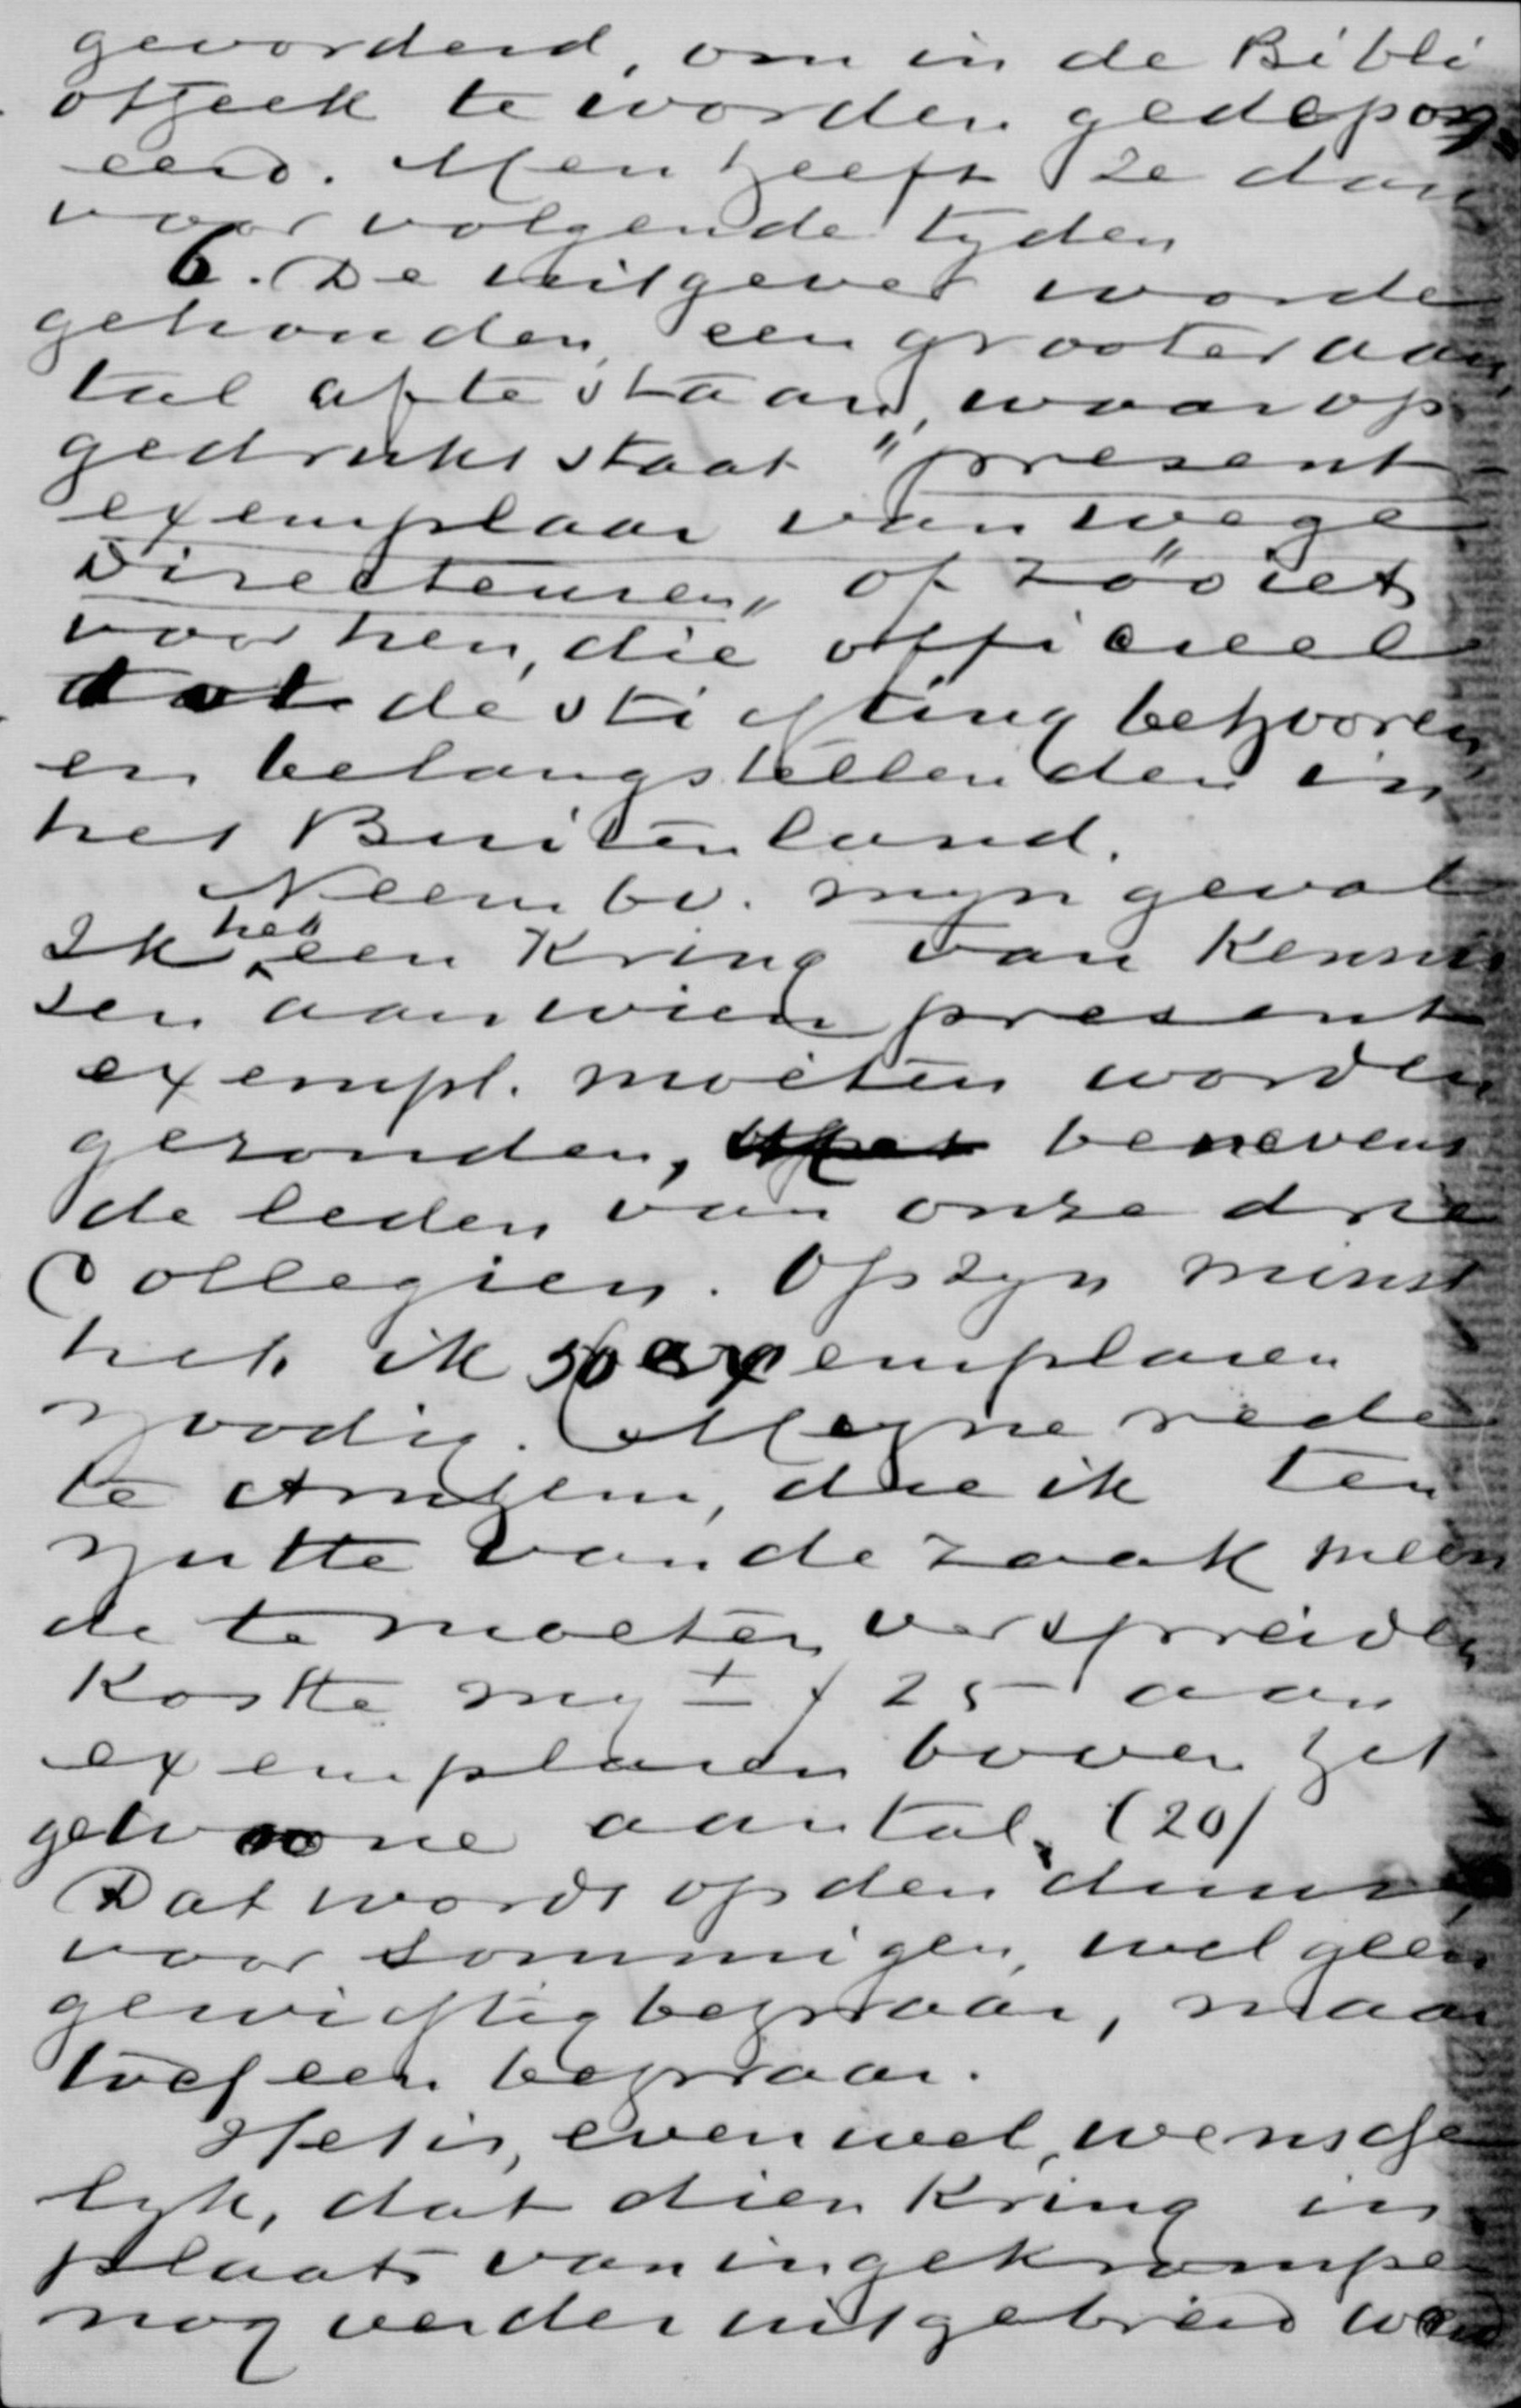 gevorderd, om in de Bibli
otheek te worden gedepon
eerd. Men heeft ze dan
voor volgende tyden
6. De uitgever worde
gehouden, een grooter aan
tal af te staan, waarop
gedrukt staat "present-
exemplaar van wege
Directeuren" of zóó iets
voor hen, die officieel
tot de stichting behooren
en belangstellenden in
het Buitenland.
Neem bv. myn geval
Ik heb een Kring van Kennis
sen aan wien present
exempl. moeten worden
gezonden, benevens
de leden van onze drie
Collegien. Op zyn minst
heb ik 50 exemplaren
noodig. Myne rede
te Arnhem, die ik ten
nutte van de zaak meen
de te moeten verspreiden
Kostte my ± f 25 - aan
exemplaren boven het
gewone aantal. (20)
Dat wordt op den duur,
voor sommigen, wel geen
gewichtig bezwaar, maar
toch een bezwaar.
Het is, evenwel, wensche
lyk, dat dien Kring in
plaats van ingekrompen
nog verder uitgebreid werd